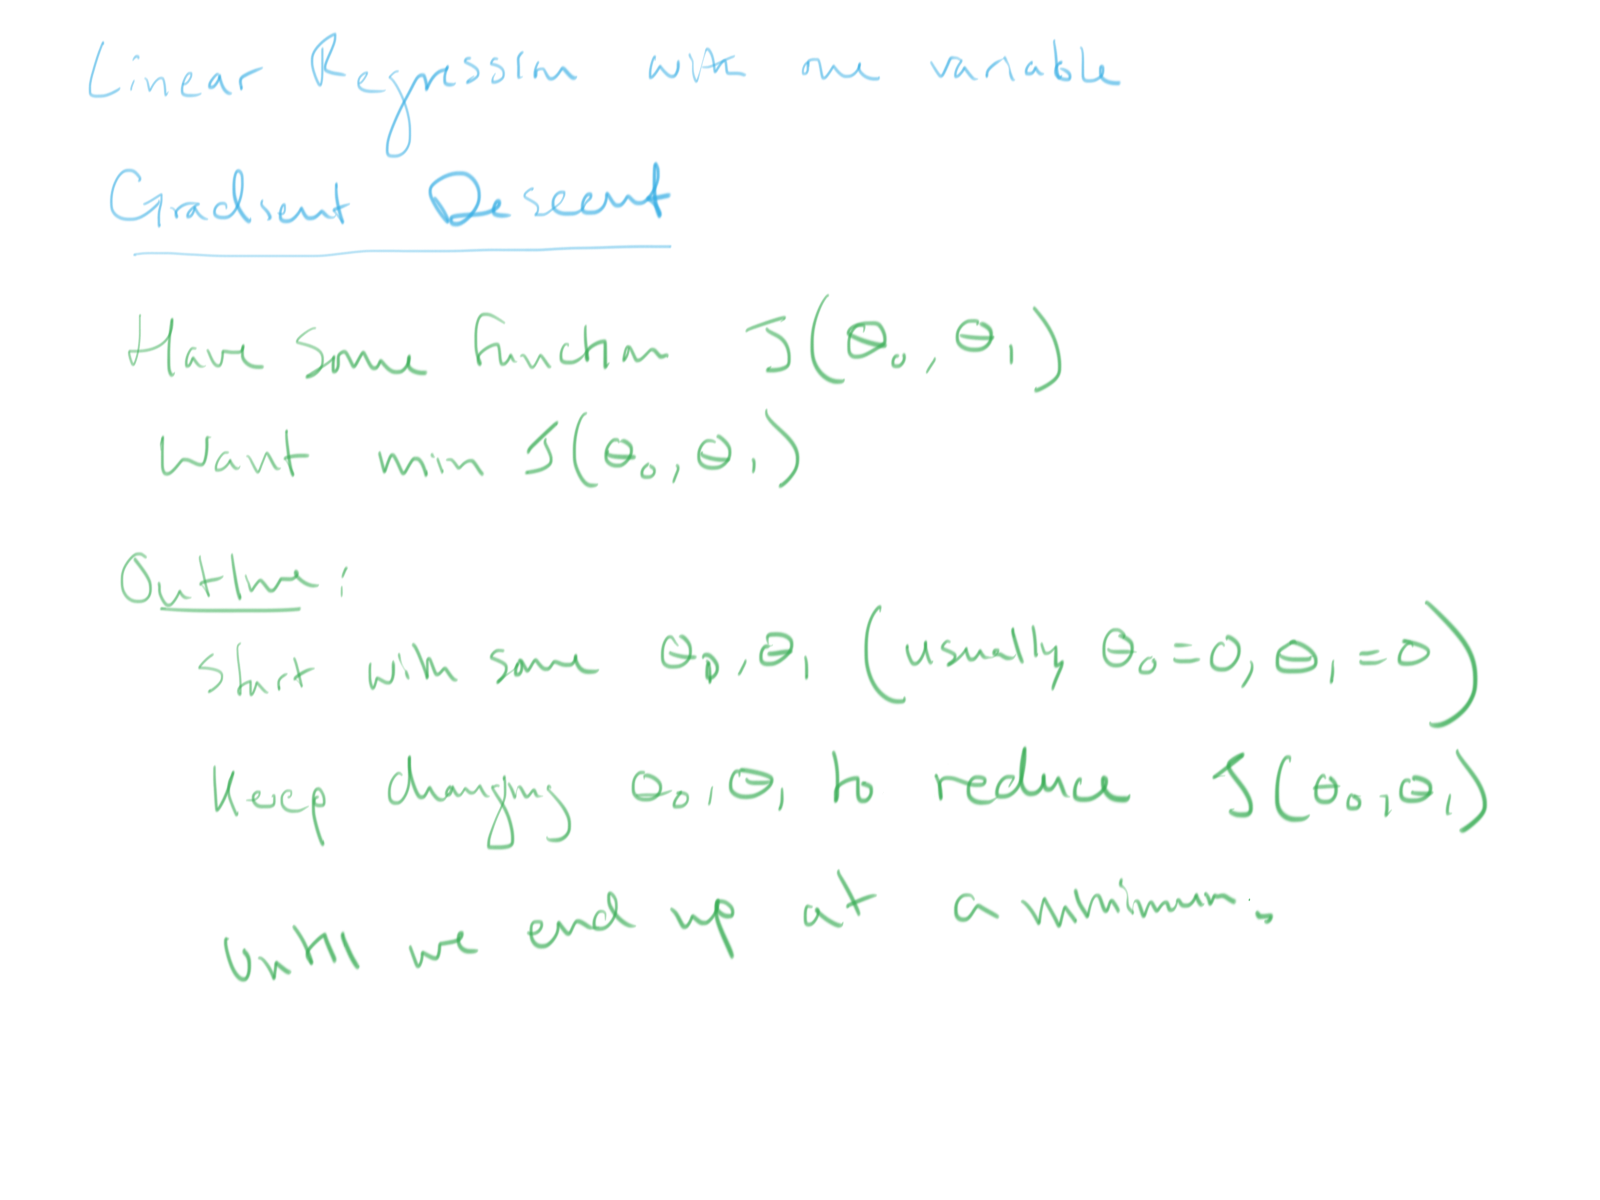 Linear Regression with one variable
Gradient Descent
Have some function J(θ₀, θ₁)
Want min J(θ₀, θ₁)
Outline:
Start with some θ₀, θ₁ (usually θ₀ = 0, θ₁ = 0)
Keep changing θ₀, θ₁ to reduce J(θ₀, θ₁)
Until we end up at a minimum.